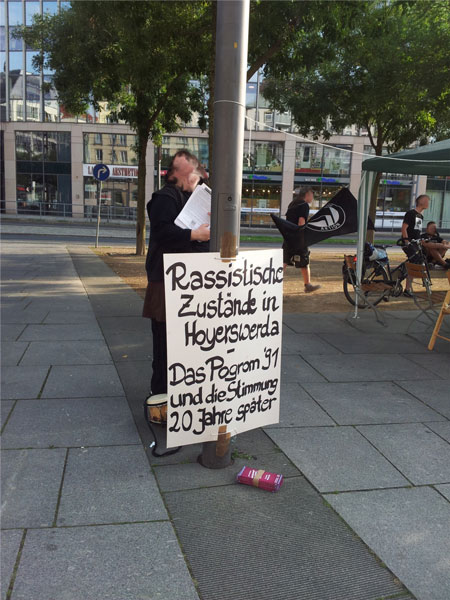 Rassistische
Zustände in
Hoyerswerda
-
Das Pogrom '91
und die Stimmung
20 Jahre später